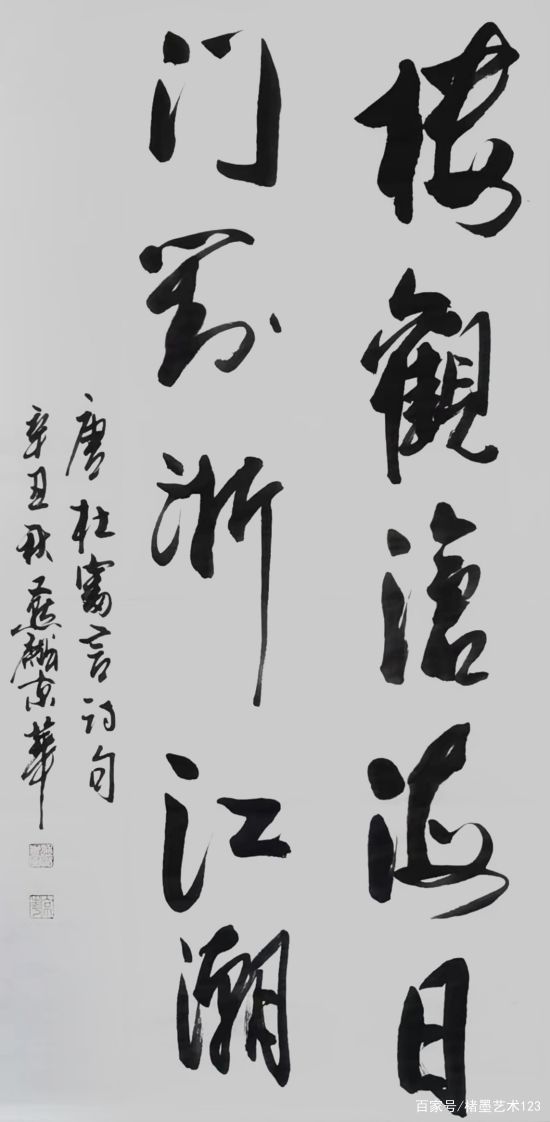 楼觀滄海日
门對浙江潮
唐杜審言诗句
辛丑秋燕京華
百家号/楮墨艺术123